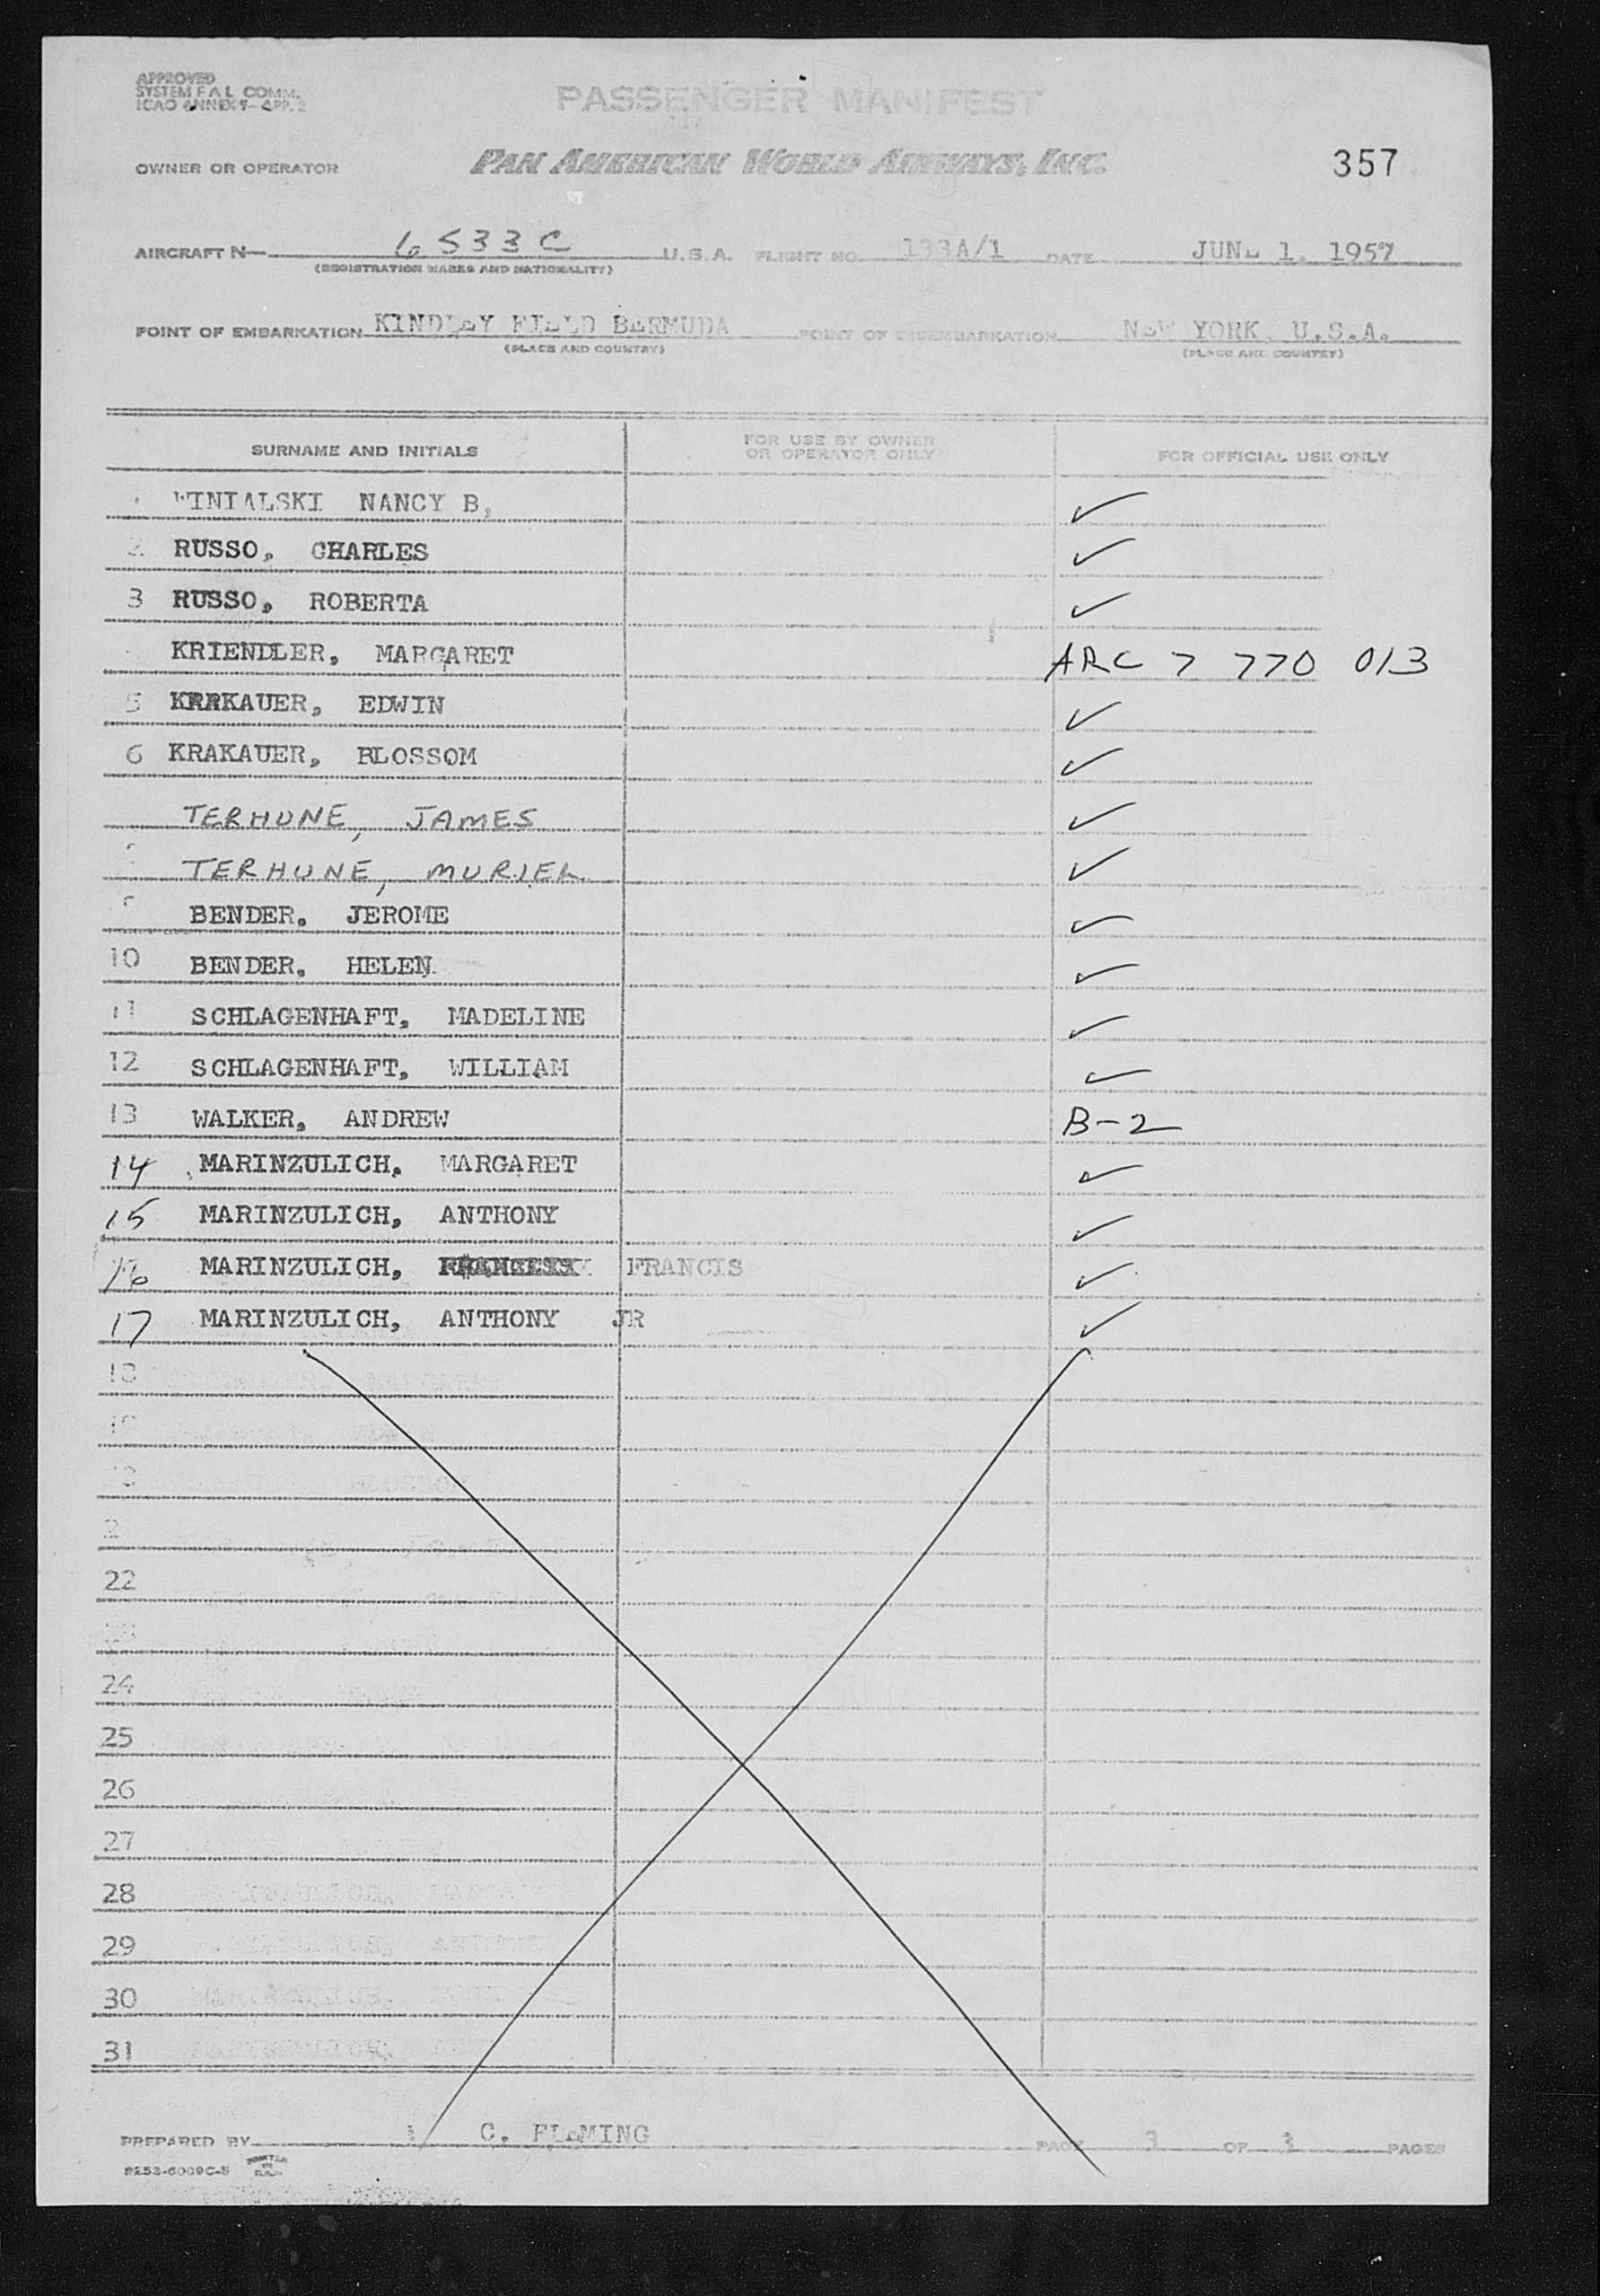 APPROVED
SYSTEM F A L COMM.
ICAO ANNEX 9- APP. 2
PASSENGER MANIFEST
OWNER OR OPERATOR PAN AMERICAN WORLD AIRWAYS, INC. 357
AIRCRAFT N— 6533C U.S.A. FLIGHT NO. 133A/1 DATE JUNE 1, 1957
(REGISTRATION MARKS AND NATIONALITY)
POINT OF EMBARKATION KINDLEY FIELD BERMUDA POINT OF DISEMBARKATION NEW YORK, U.S.A.
(PLACE AND COUNTRY) (PLACE AND COUNTRY)
SURNAME AND INITIALS FOR USE BY OWNER OR OPERATOR ONLY FOR OFFICIAL USE ONLY
WINIALSKI NANCY B, ✓
2 RUSSO, CHARLES ✓
3 RUSSO, ROBERTA ✓
KRIENDLER, MARGARET ARC 7 770 013
5 KRRKAUER, EDWIN ✓
6 KRAKAUER, BLOSSOM ✓
TERHUNE, JAMES ✓
TERHUNE, MURIEL ✓
BENDER, JEROME ✓
10 BENDER, HELEN ✓
11 SCHLAGENHAFT, MADELINE ✓
12 SCHLAGENHAFT, WILLIAM ✓
13 WALKER, ANDREW B-2
14 MARINZULICH, MARGARET ✓
15 MARINZULICH, ANTHONY ✓
16 MARINZULICH, FRANCIS ✓
17 MARINZULICH, ANTHONY JR ✓
18
19
22
24
25
26
27
28
29
30
31
PREPARED BY C. FLEMING PAGE 3 OF 3 PAGES